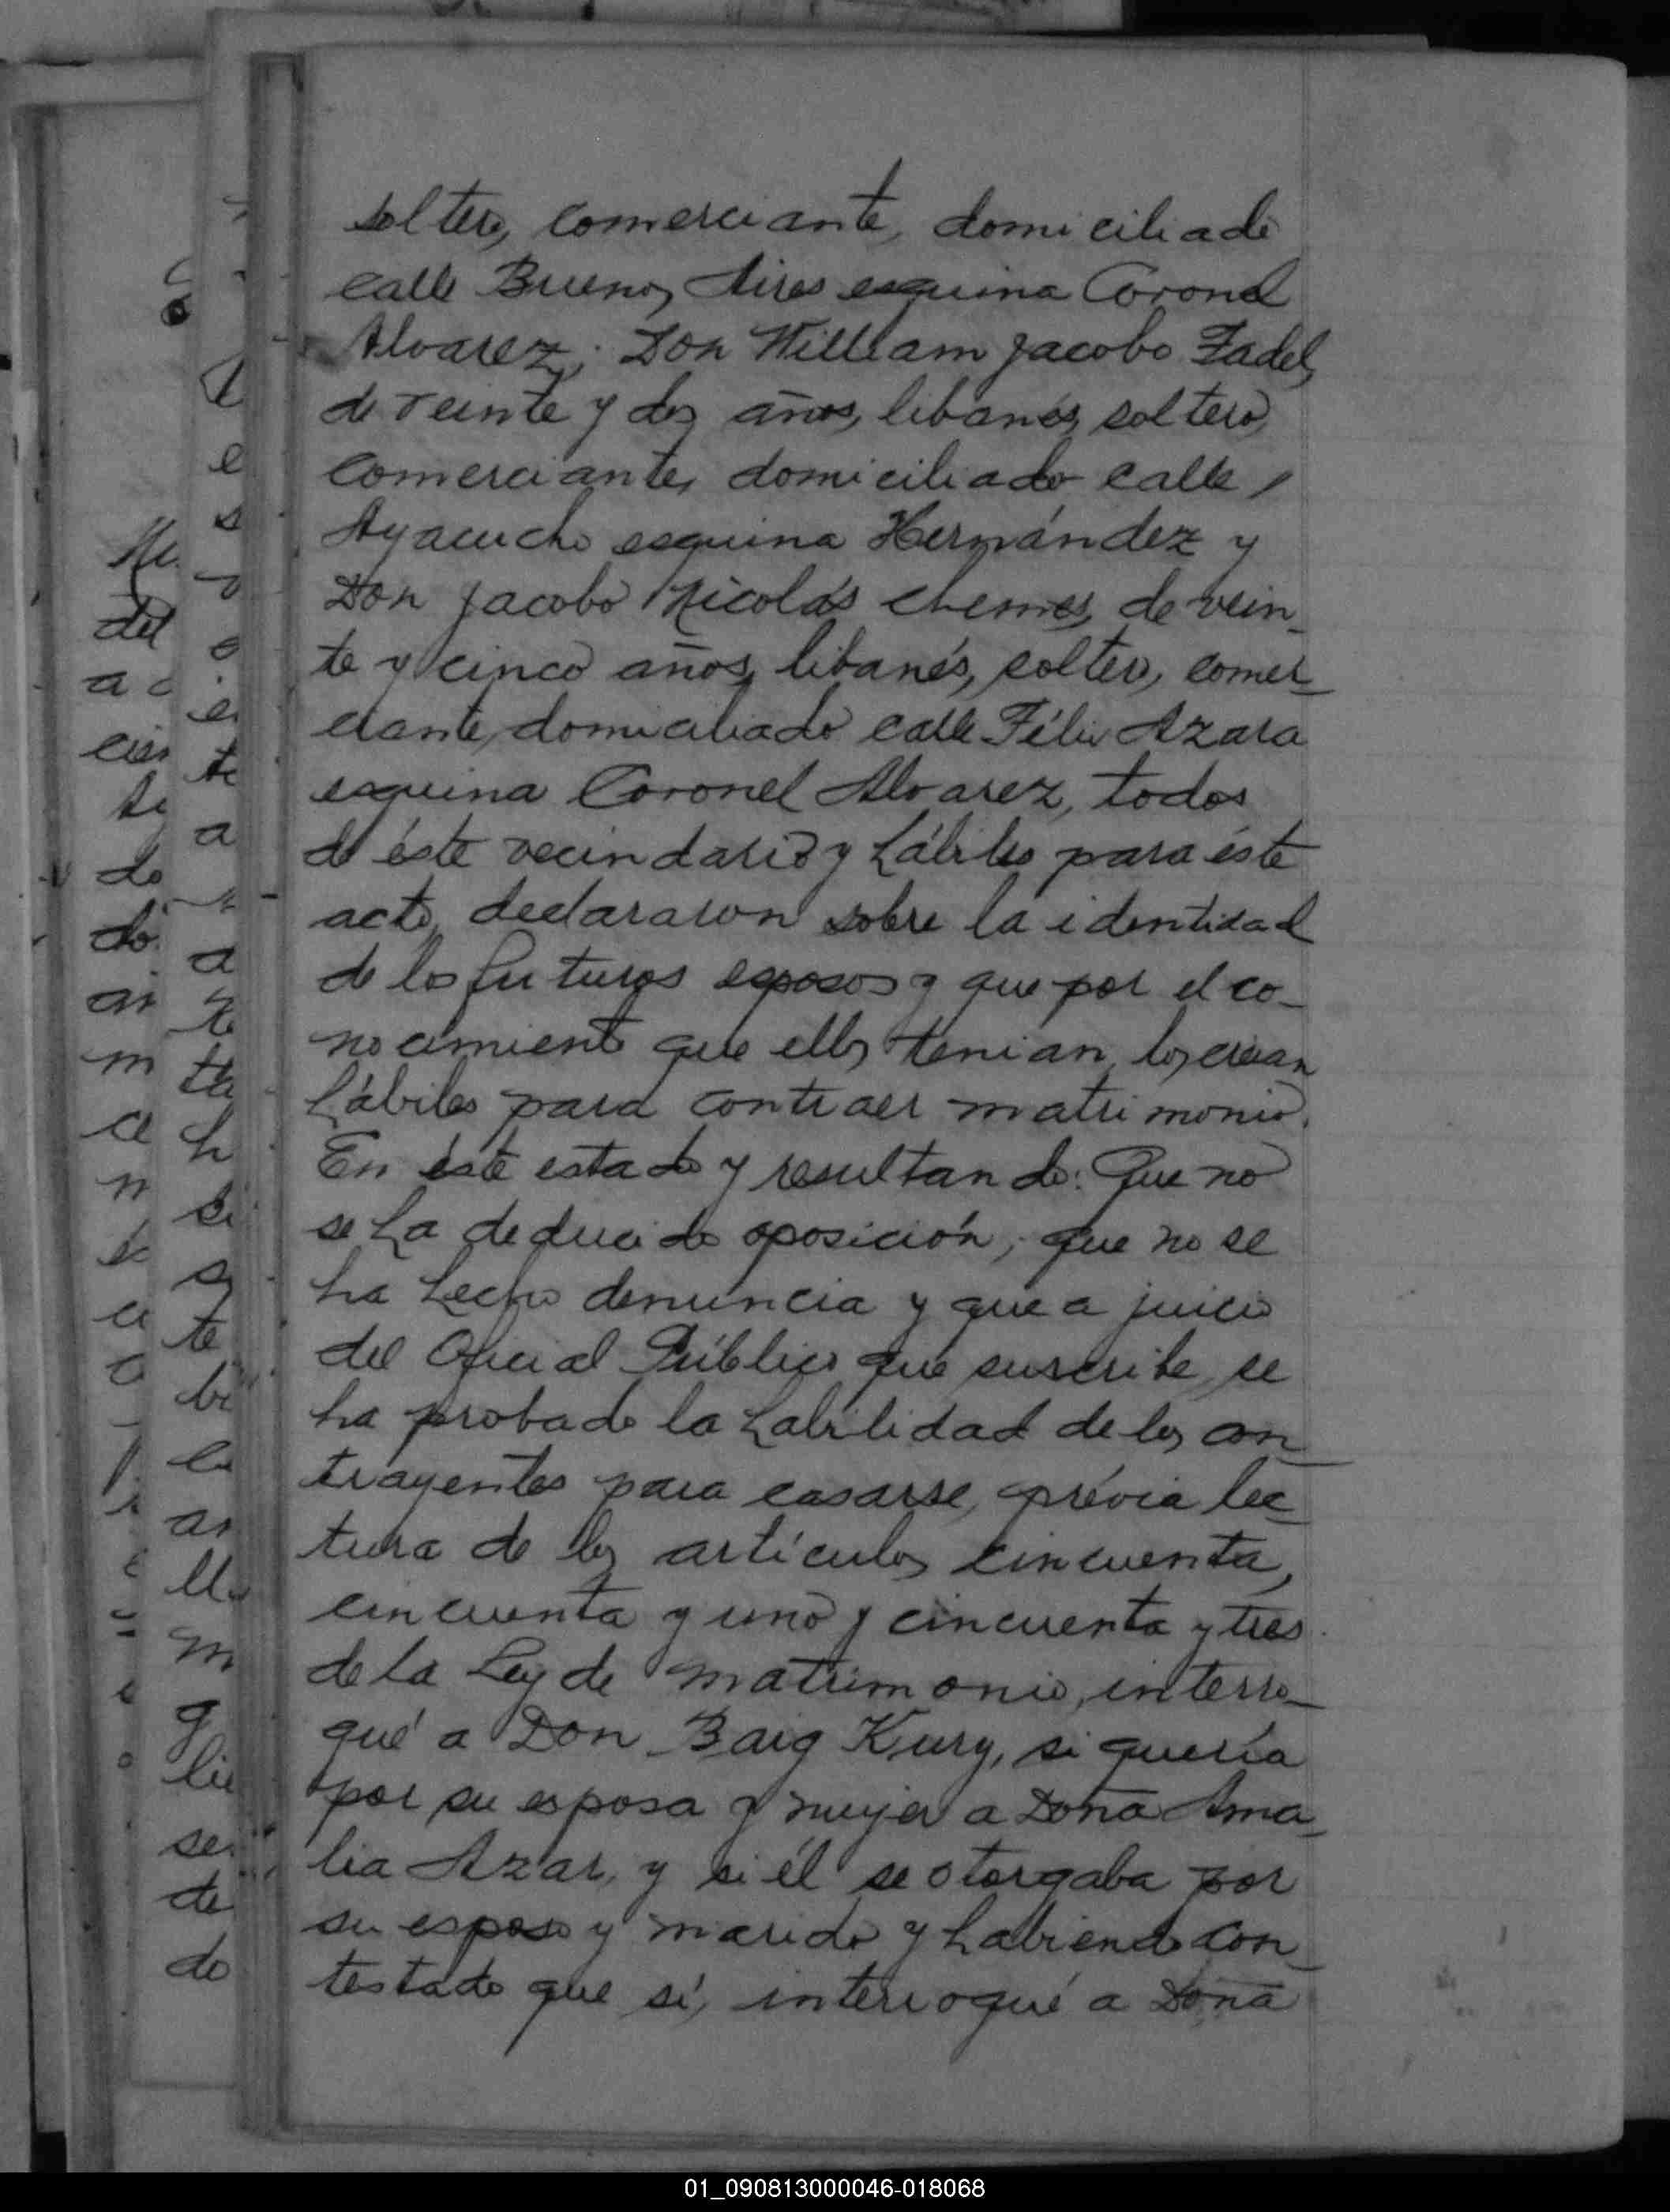 soltero, comerciante, domiciliado
calle Buenos Aires esquina Coronel
Alvarez; Don William Jacobo Fadel,
de veinte y dos años, libanés, soltero,
comerciante, domiciliado calle
Ayacucho esquina Hernández y
Don Jacobo Nicolás Chemes, de vein-
te y cinco años, libanés, soltero, comer-
ciante, domiciliado calle Félix Azara
esquina Coronel Alvarez, todos
de éste vecindario y hábiles para éste
acto, declararon sobre la identidad
de los futuros esposos y que por el co-
nocimiento que ellos tenian, los creian
hábiles para contraer matrimonio.
En éste estado y resultando: Que no
se ha deducido oposición; que no se
ha hecho denuncia y que a juicio
del Oficial Público que suscribe, se
ha probado la habilidad de los con-
trayentes para casarse, prévia lec-
tura de los artículos cincuenta,
cincuenta y uno y cincuenta y tres
de la Ley de Matrimonio, interro-
gué a Don Baig Kury, si quería
por su esposa y mujer a Doña Ama-
lia Azar, y si él se otorgaba por
su esposo y marido y habiendo con-
testado que sí, interrogué a Doña
01_090813000046-018068